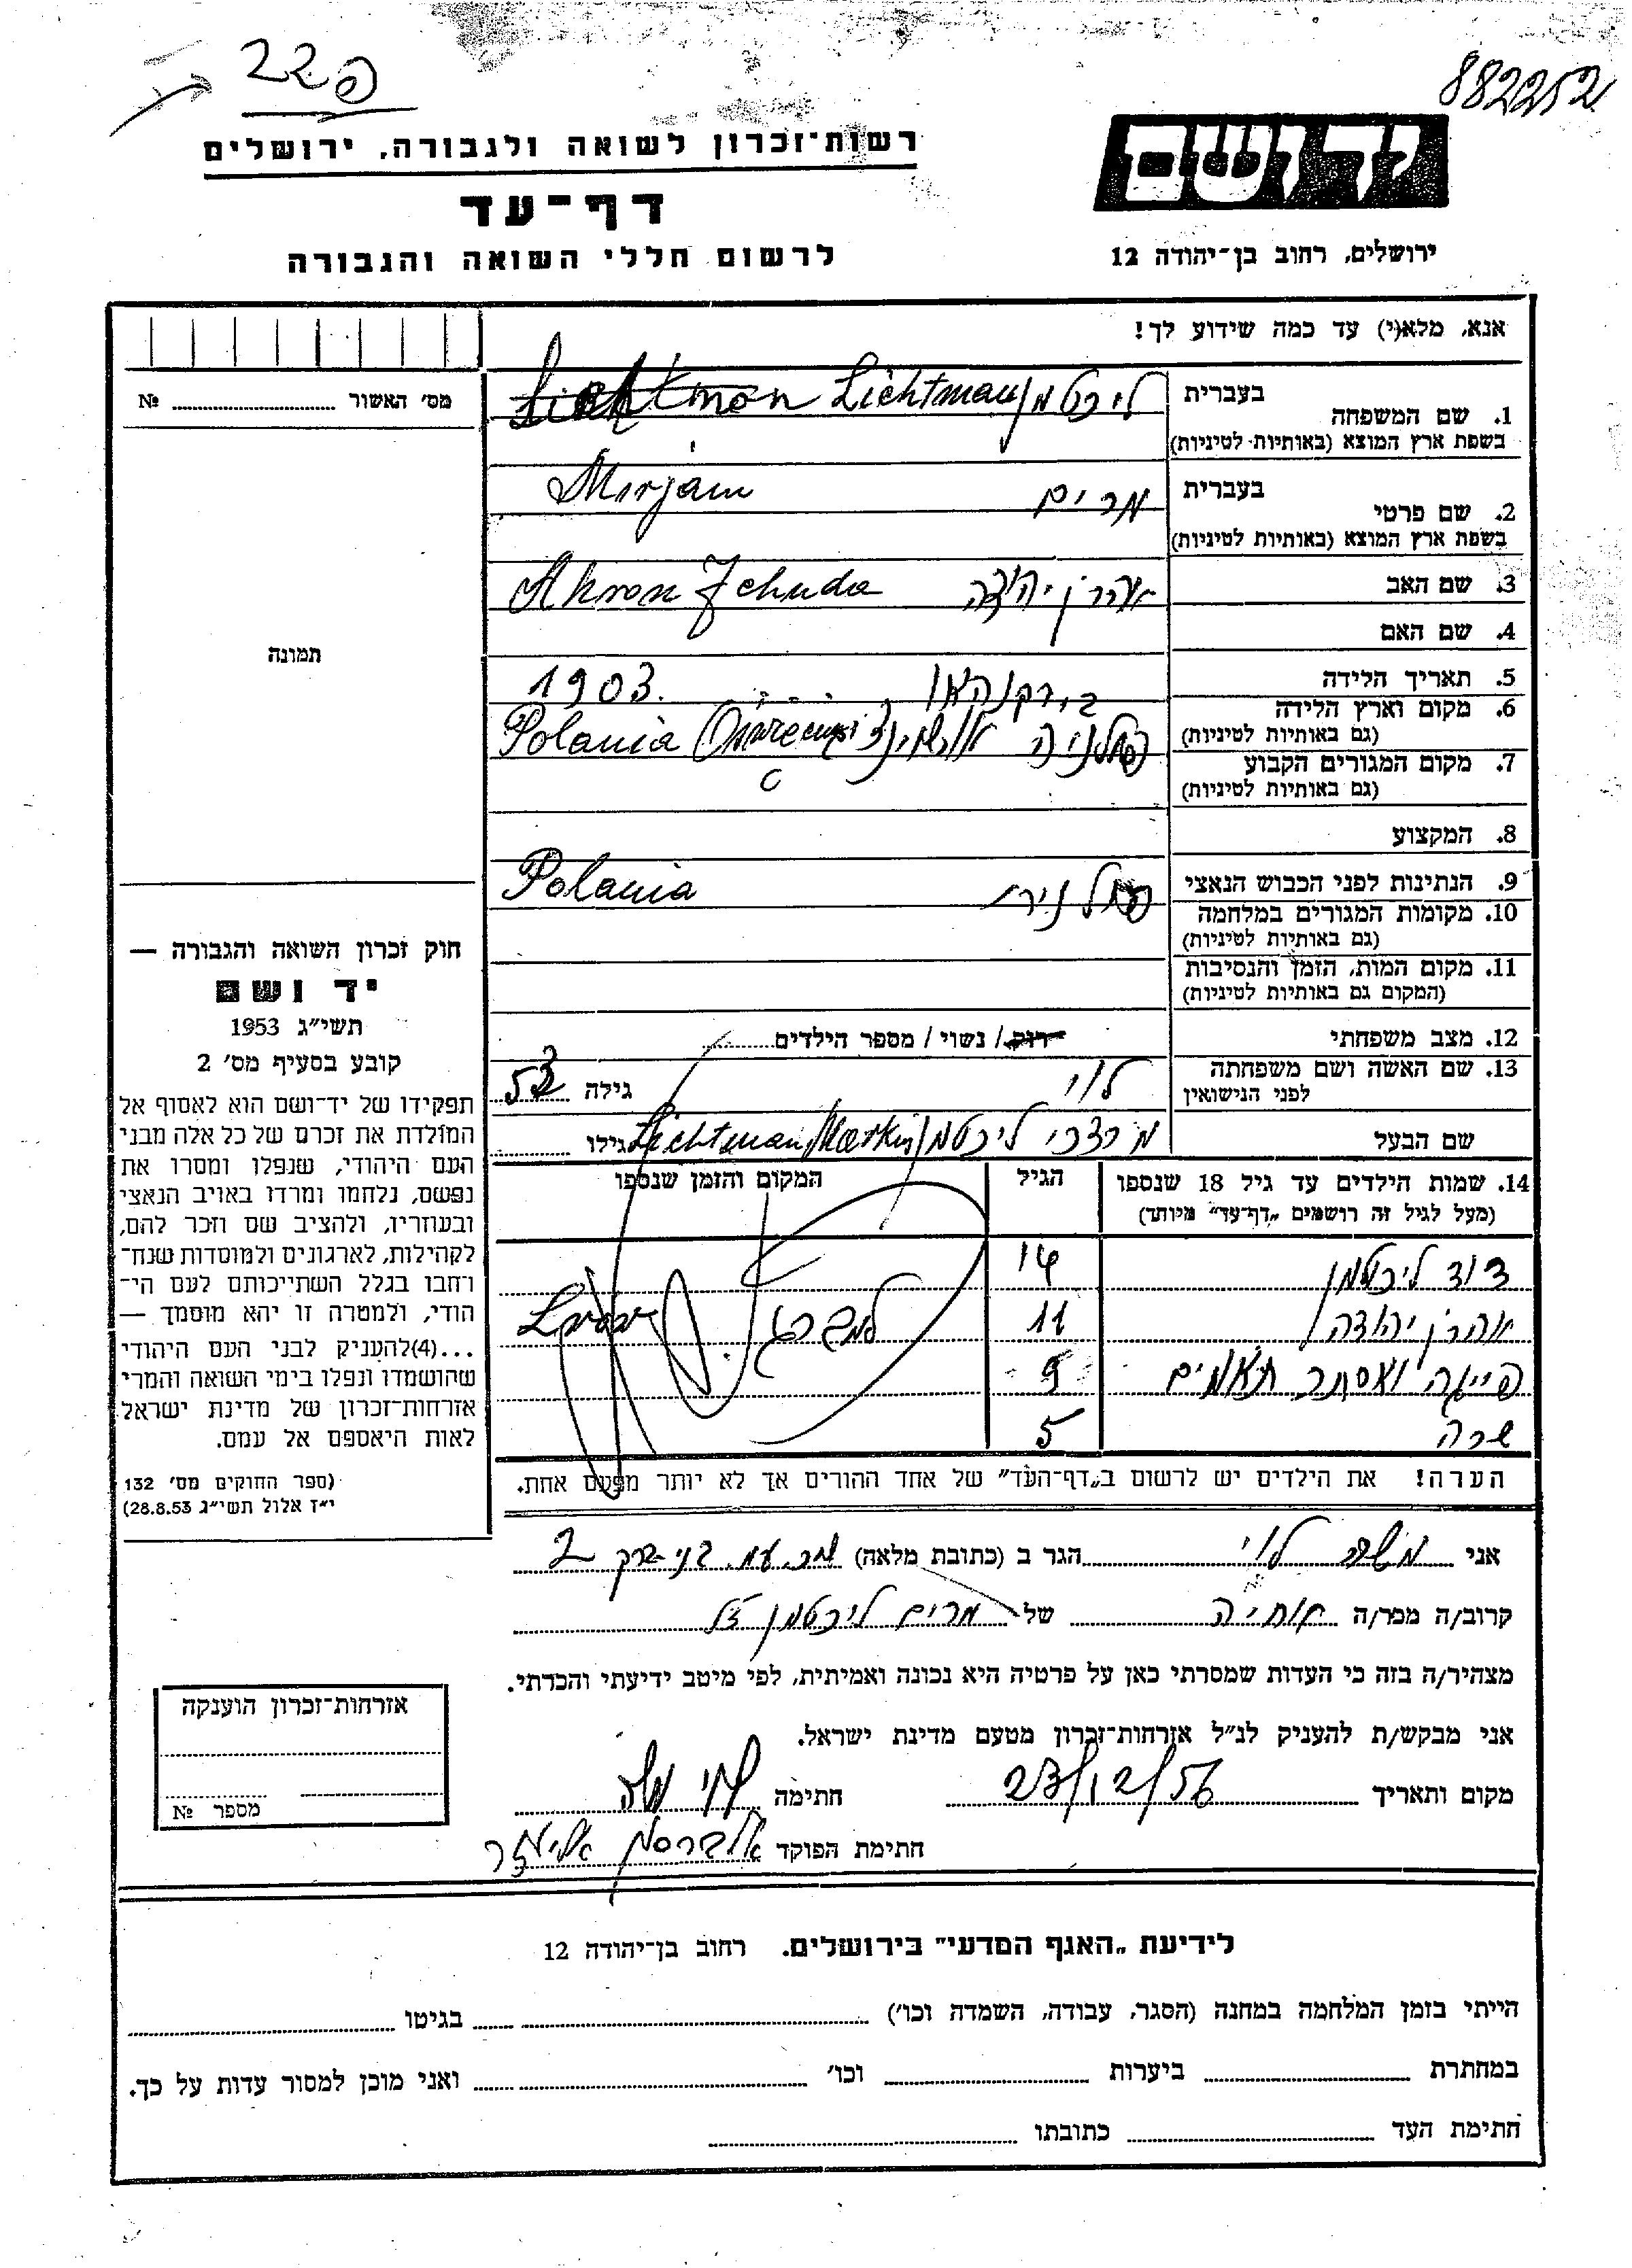 פ22
882252
יד ושם
רשות־זכרון לשואה ולגבורה, ירושלים
דף־עד
לרשום חללי השואה והגבורה
ירושלים, רחוב בן־יהודה 12
אנא, מלא(י) עד כמה שידוע לך!
מס׳ האשור № ..........
תמונה
1. שם המשפחה בעברית ליכטמן Lichtman
בשפת ארץ המוצא (באותיות לטיניות)
2. שם פרטי בעברית מרים Mirjam
בשפת ארץ המוצא (באותיות לטיניות)
3. שם האב אהרן יהודה Ahron Jehuda
4. שם האם
5. תאריך הלידה 1903.
6. מקום וארץ הלידה
(גם באותיות לטיניות) פולניה Polania
7. מקום המגורים הקבוע
(גם באותיות לטיניות)
8. המקצוע
9. הנתינות לפני הכבוש הנאצי Polania
10. מקומות המגורים במלחמה
(גם באותיות לטיניות)
11. מקום המות, הזמן והנסיבות
(המקום גם באותיות לטיניות)
12. מצב משפחתי רווק / נשוי / מספר הילדים..........
13. שם האשה ושם משפחתה לוי גילה 53
לפני הנישואין
שם הבעל מרדכי ליכטמן Lichtman גילו ..........
14. שמות הילדים עד גיל 18 שנספו הגיל המקום והזמן שנספו
(מעל לגיל זה רושמים „דף־עד” מיוחד)
דוד ליכטמן 14
אהרן יהודה 11 למברג
פייגה ואסתר תאומים 9
שרה 5
הערה! את הילדים יש לרשום ב„דף־העד” של אחד ההורים אך לא יותר מפעם אחת.
חוק זכרון השואה והגבורה —
יד ושם
תשי״ג 1953
קובע בסעיף מס׳ 2
תפקידו של יד־ושם הוא לאסוף אל
המולדת את זכרם של כל אלה מבני
העם היהודי, שנפלו ומסרו את
נפשם, נלחמו ומרדו באויב הנאצי
ובעוזריו, ולהציב שם וזכר להם,
לקהילות, לארגונים ולמוסדות שנח־
רחבו בגלל השתייכותם לעם הי־
הודי, ולמטרה זו יהא מוסמך —
...(4)להעניק לבני העם היהודי
שהושמדו ונפלו בימי השואה והמרי
אזרחות־זכרון של מדינת ישראל
לאות היאספם אל עמם.
(ספר החוקים מס׳ 132
י״ז אלול תשי״ג 28.8.53)
אני משה לוי הגר ב (כתובת מלאה) בני ברק 2
קרוב/ה מכר/ה של מרים ליכטמן ז״ל
מצהיר/ה בזה כי העדות שמסרתי כאן על פרטיה היא נכונה ואמיתית, לפי מיטב ידיעתי והכרתי.
אני מבקש/ת להעניק לנ״ל אזרחות־זכרון מטעם מדינת ישראל.
מקום ותאריך 23/12/56 חתימה לוי משה
חתימת הפוקד אליעזר
אזרחות־זכרון הוענקה
מספר №
לידיעת „האגף המדעי” בירושלים, רחוב בן־יהודה 12
הייתי בזמן המלחמה במחנה (הסגר, עבודה, השמדה וכו׳) .......... בגיטו ..........
במחתרת .......... ביערות .......... וכו׳ .......... ואני מוכן למסור עדות על כך.
חתימת העד .......... כתובתו ..........